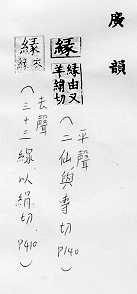 廣韻
緣 緣由又
羊絹切
(平聲
二仙與專切
P140)
緣 衣
緣
(去聲
三十三線以絹切
P410)